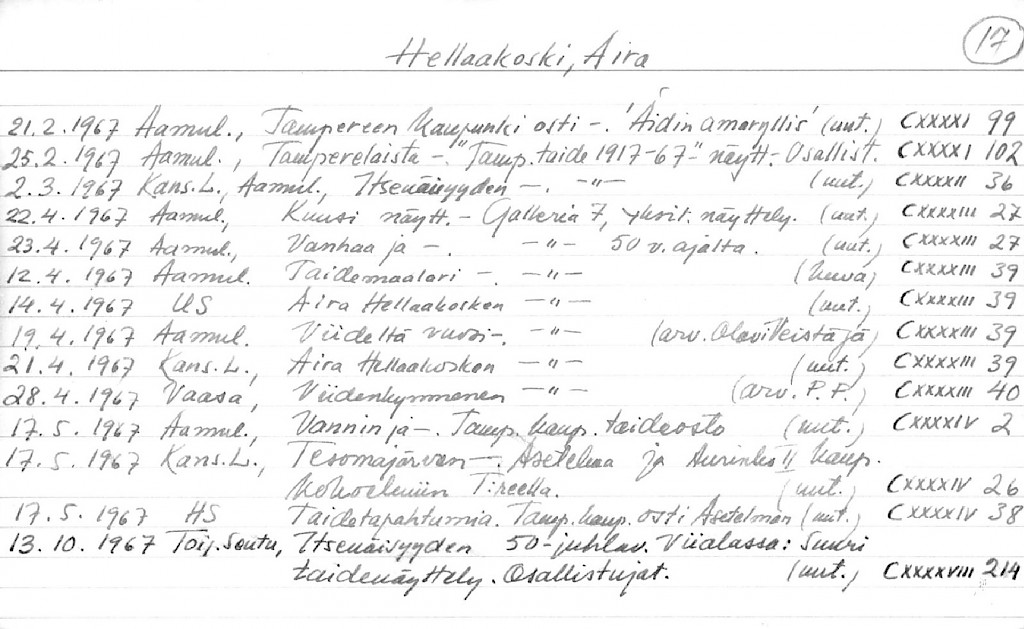 17
Hellaakoski, Aira
21.2.1967 Aamul., Tampereen kaupunki osti -. 'Äidin amaryllis' (uut.) CXXXXI 99
25.2.1967 Aamul., Tamperelaista -. "Tamp. taide 1917-67-" näytt. Osallist. CXXXXI 102
2.3.1967 Kans.L., Aamul., Itsenäisyyden -. -"- (uut.) CXXXXII 36
22.4.1967 Aamul., Kuusi näytt. - Galleria 7, yksit. näyttely. (uut.) CXXXXIII 27
23.4.1967 Aamul., Vanhaa ja -. -"- 50 v. ajalta. (uut.) CXXXXIII 27
12.4.1967 Aamul. Taidemaalari -. -"- (kuva) CXXXXIII 39
14.4.1967 US Aira Hellaakosken -"- (uut.) CXXXXIII 39
19.4.1967 Aamul. Viideltä vuosi-. -"- (arv. Olavi Veistäjä) CXXXXIII 39
21.4.1967 Kans.L., Aira Hellaakosken -"- (uut.) CXXXXIII 39
28.4.1967 Vaasa, Viidenkymmenen -"- (arv. P.P.) CXXXXIII 40
17.5.1967 Aamul., Vanninja -. Tamp. kaup. taideosto (uut.) CXXXXIV 2
17.5.1967 Kans.L., Tesomajärven -. Asetelma ja Aurinko II kaup.
kokoelmiin T:reella. (uut.) CXXXXIV 26
17.5.1967 HS Taidetapahtumia. Tamp. kaup. osti Asetelman (uut.) CXXXXIV 38
13.10.1967 Toij. Seutu, Itsenäisyyden 50-juhlav. Viialassa: Suuri
taidenäyttely. Osallistujat. (uut.) CXXXXVIII 214